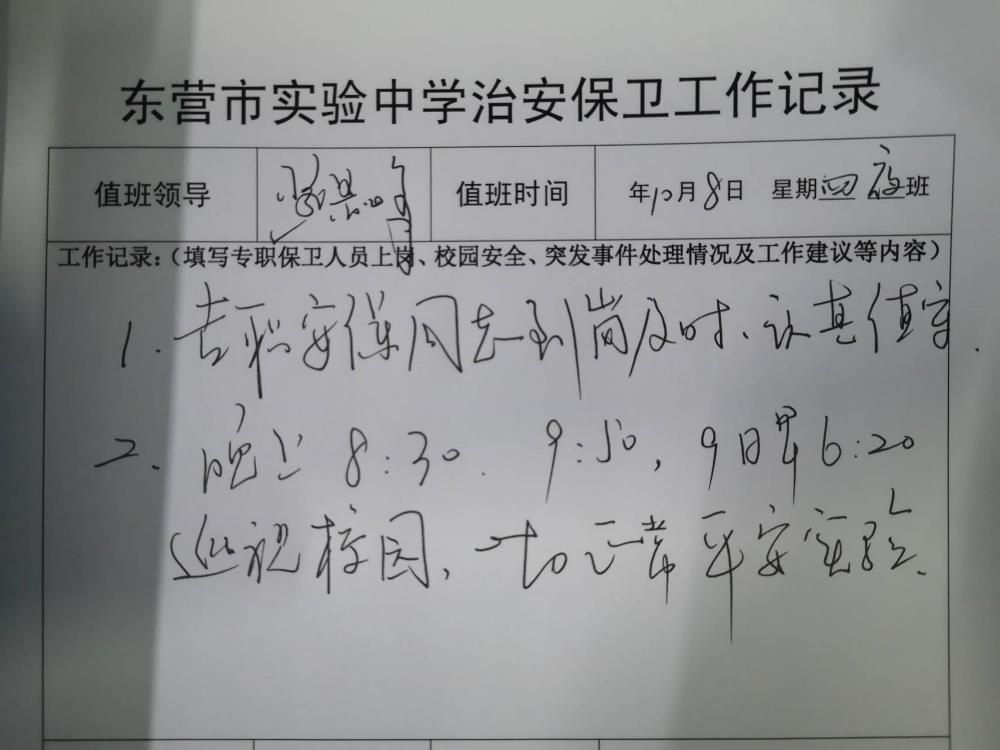 东营市实验中学治安保卫工作记录
值班领导 值班时间 年10月8日 星期四夜班
工作记录：（填写专职保卫人员上岗、校园安全、突发事件处理情况及工作建议等内容）
1. 专职安保同志到岗及时、认真值守.
2. 晚上8:30. 9:50, 9日早6:20
巡视校园, 一切正常平安实验.